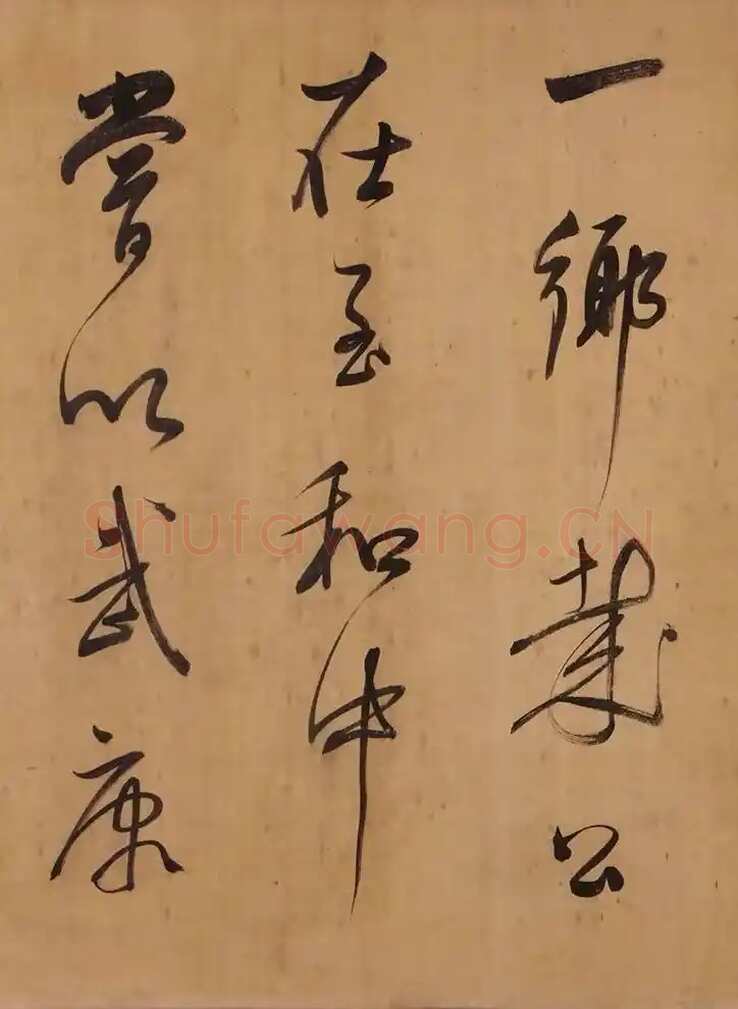 一鄉哉公
在至和中
嘗以武康
Shufawang.CN